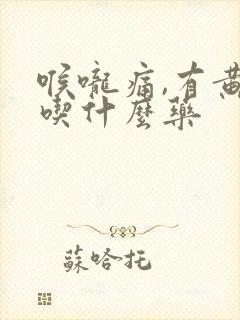 喉嚨痛,有
喫什麼藥
蘇哈托